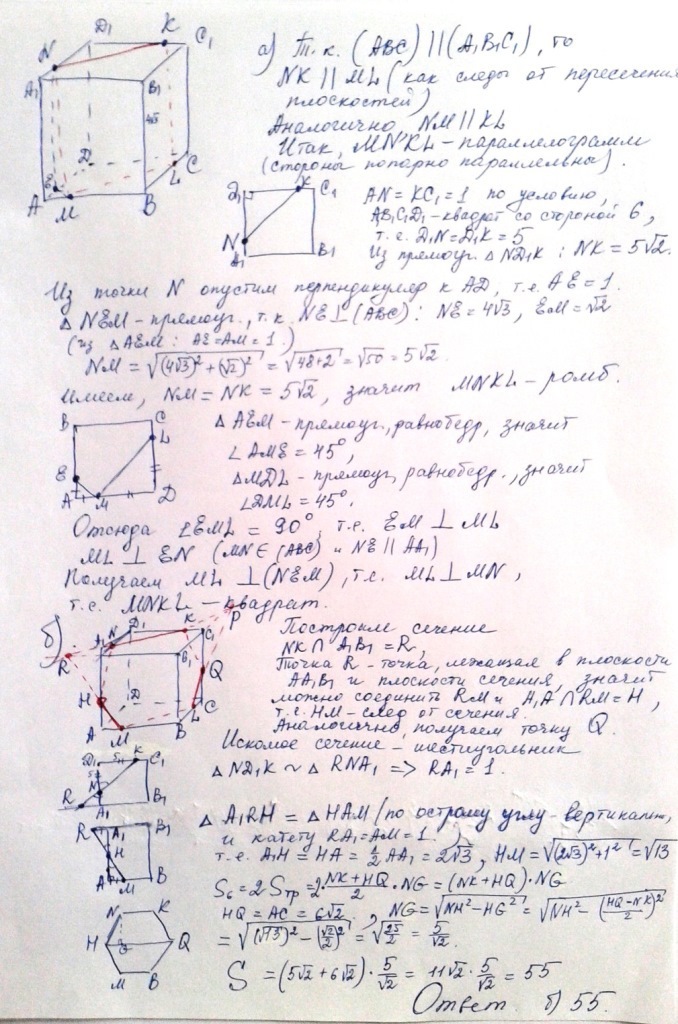 а) Т.к. (ABC) || (A₁B₁C₁), то
NK || ML (как следы от пересечения
плоскостей)
Аналогично NM || KL
Итак, MNKL – параллелограмм
(стороны попарно параллельны).
D₁ K C₁ N A₁ B₁ 4√3 D C E L A M B
D₁ K C₁ N A₁ B₁
AN = KC₁ = 1 по условию,
A₁B₁C₁D₁ – квадрат со стороной 6,
т.е. D₁N = D₁K = 5
Из прямоуг. △ ND₁K : NK = 5√2.
Из точки N опустим перпендикуляр к AD, т.е. AE = 1.
△ NEM – прямоуг., т.к. NE ⊥ (ABC) : NE = 4√3, EM = √2
(из △ AEM : AE = AM = 1.)
NM = √((4√3)² + (√2)²) = √(48+2) = √50 = 5√2.
Имеем, NM = NK = 5√2, значит MNKL – ромб.
B C L E A M D
△ AEM – прямоуг, равнобедр, значит
∠ AME = 45°,
△ MDL – прямоуг, равнобедр., значит
∠DML = 45°.
Отсюда ∠EML = 90°, т.е. EM ⊥ ML
ML ⊥ EN (MN ∈ (ABC) и NE || AA₁)
Получаем ML ⊥ (NEM), т.е. ML ⊥ MN,
т.е. MNKL – квадрат.
б)
A₁ N D₁ K C₁ P R B₁ Q H D L C A M B
Построим сечение
NK ∩ A₁B₁ = R,
Точка R – точка, лежащая в плоскости
AA₁B₁ и плоскости сечения, значит
можно соединить RM и A₁A ∩ RM = H,
т.е. HM – след от сечения.
Аналогично, получаем точку Q.
Искомое сечение – шестиугольник
△ ND₁K ~ △ RNA₁ => RA₁ = 1.
D₁ 5 K 5 N R A₁ B₁
R A₁ B₁ H A M B
△ A₁RH = △ HAM (по острому углу – вертикалин,
и катету RA₁ = AM = 1.
т.е. A₁H = HA = ½ AA₁ = 2√3, HM = √((2√3)² + 1²) = √13
S₆ = 2 Sтр = 2 · (NK + HQ)/2 · NG = (NK + HQ) · NG
HQ = AC = 6√2, NG = √(NH² – HG²) = √(NH² – ((HQ – NK)/2)²)
= √((√13)² – (√2/2)²) = √(25/2) = 5/√2.
N K H G Q M B
S = (5√2 + 6√2) · 5/√2 = 11√2 · 5/√2 = 55
Ответ б) 55.